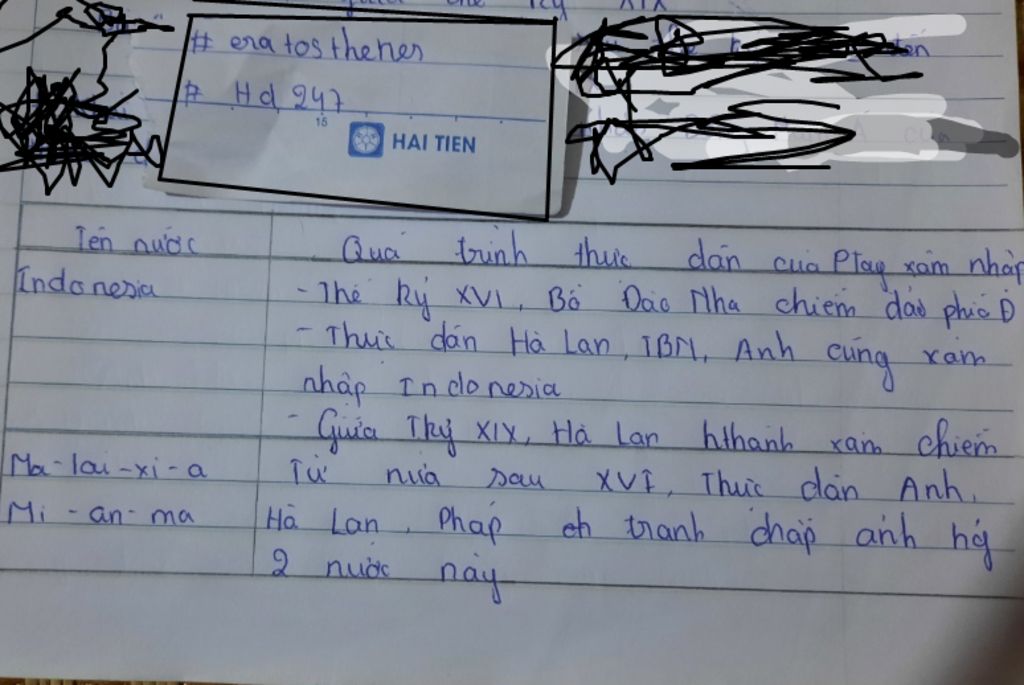 giữa thế kỷ XIX
# eratosthenes
# Hd 247
18
HAI TIEN
Tên nước
Quá trình thực dân của PTây xâm nhập
Indonesia
- Thế kỷ XVI, Bồ Đào Nha chiếm đảo phía Đ
- Thực dân Hà Lan, TBN, Anh cũng xâm
nhập Indonesia
- Giữa Tkỷ XIX, Hà Lan hthành xâm chiếm
Ma-lai-xi-a
Từ nửa sau XVI, Thực dân Anh,
Mi-an-ma
Hà Lan, Pháp ch tranh chấp ảnh hg
2 nước này